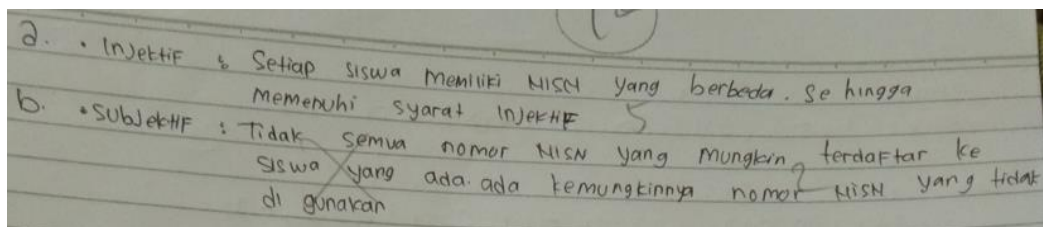 a. • Injektif : Setiap siswa memiliki NISN yang berbeda. Sehingga
memenuhi syarat injektif 5
b. • Subjektif : Tidak semua nomor NISN yang mungkin terdaftar ke
siswa yang ada. ada kemungkinnya nomor NISN yang tidak
di gunakan